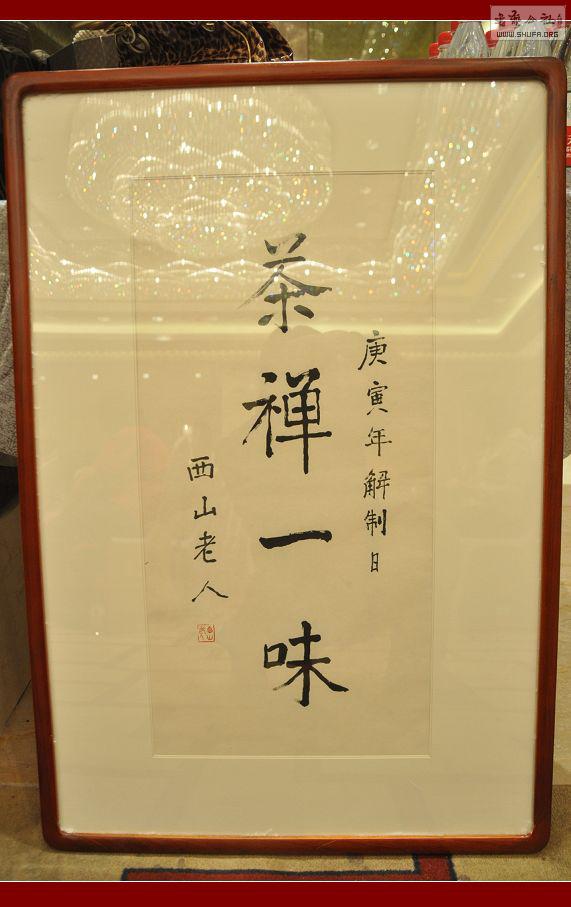 庚寅年解制日
茶禅一味
西山老人
書藝公社
WWW.SHUFA.ORG